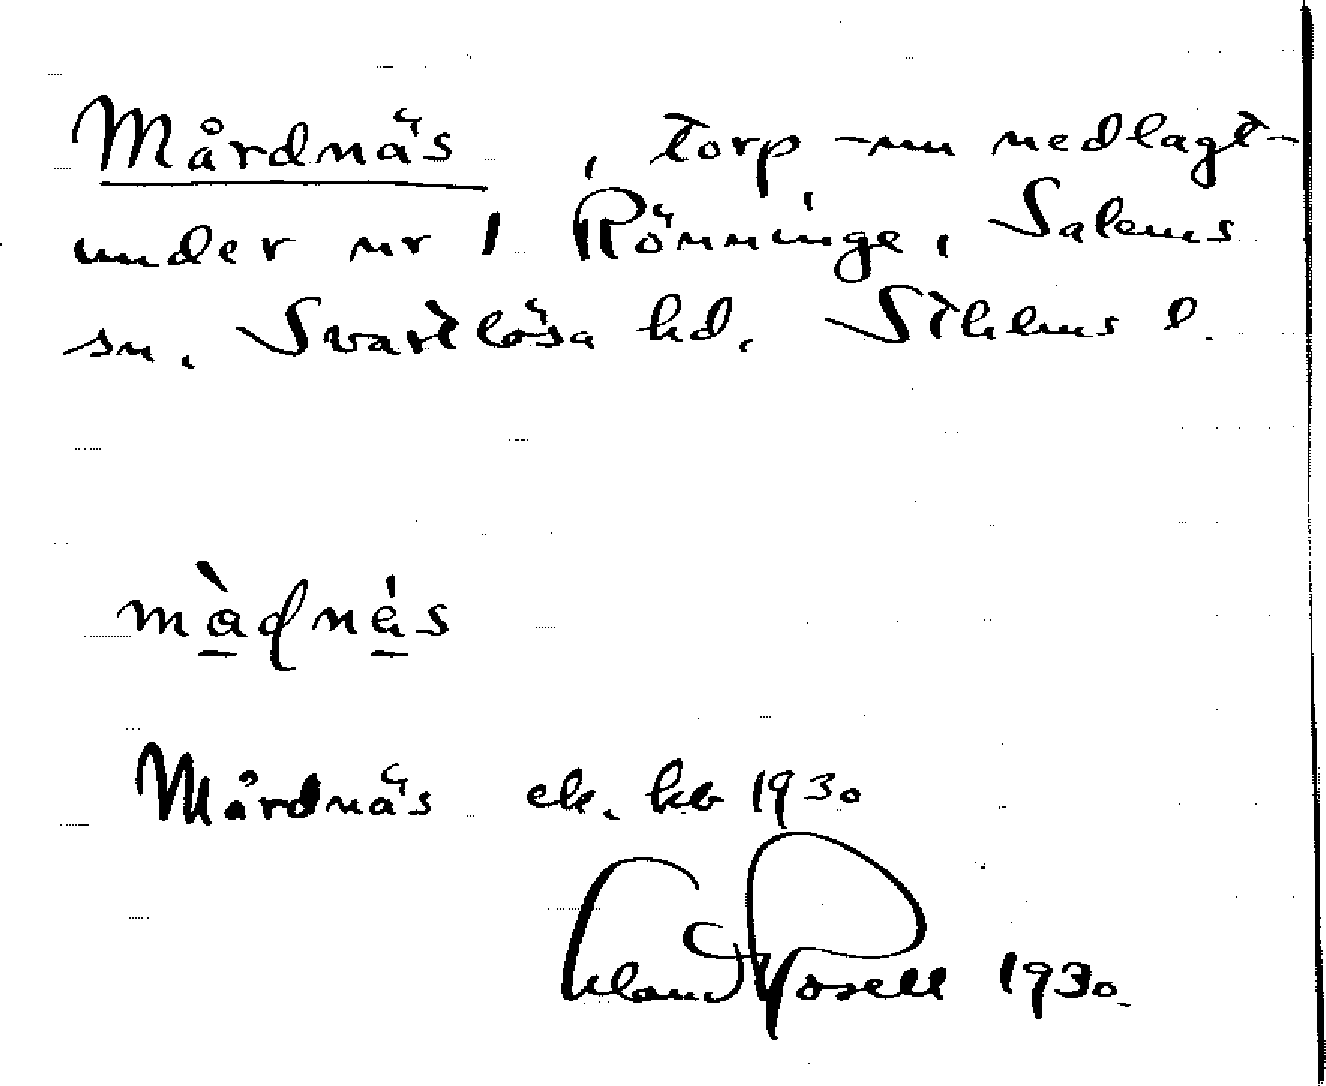 Mårdnäs, torp – nu nedlagt –
under nr 1 Rönninge, Salems
sn, Svartlösa hd, Sthlms l.
màdnä́s
Mårdnäs ek. kb 1930
Rosell 1930.